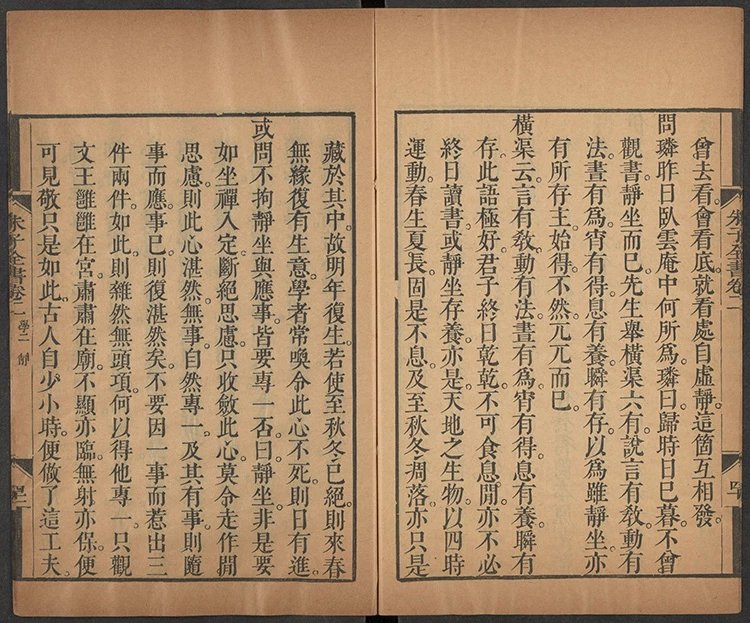 曾去看會看底就看處自虛靜這箇互相發
問璘昨日臥雲庵中何所爲璘曰歸時日已暮不曾
觀書靜坐而已先生舉橫渠六有說言有敎動有
法晝有爲宵有得息有養瞬有存以爲雖靜坐亦
有所存主始得不然兀兀而已
橫渠云言有敎動有法晝有爲宵有得息有養瞬有
存此語極好君子終日乾乾不可食息閒亦不必
終日讀書或靜坐存養亦是天地之生物以四時
運動春生夏長固是不息及至秋冬凋落亦只是
朱子全書卷二
藏於其中故明年復生若使至秋冬已絕則來春
無緣復有生意學者常喚令此心不死則日有進
或問不拘靜坐與應事皆要專一否曰靜坐非是要
如坐禪入定斷絕思慮只收斂此心莫令走作閒
思慮則此心湛然無事自然專一及其有事則隨
事而應事已則復湛然矣不要因一事而惹出三
件兩件如此則雜然無頭項何以得他專一只觀
文王雝雝在宮肅肅在廟不顯亦臨無射亦保便
可見敬只是如此古人自少小時便做了這工夫
朱子全書卷二 學二 靜